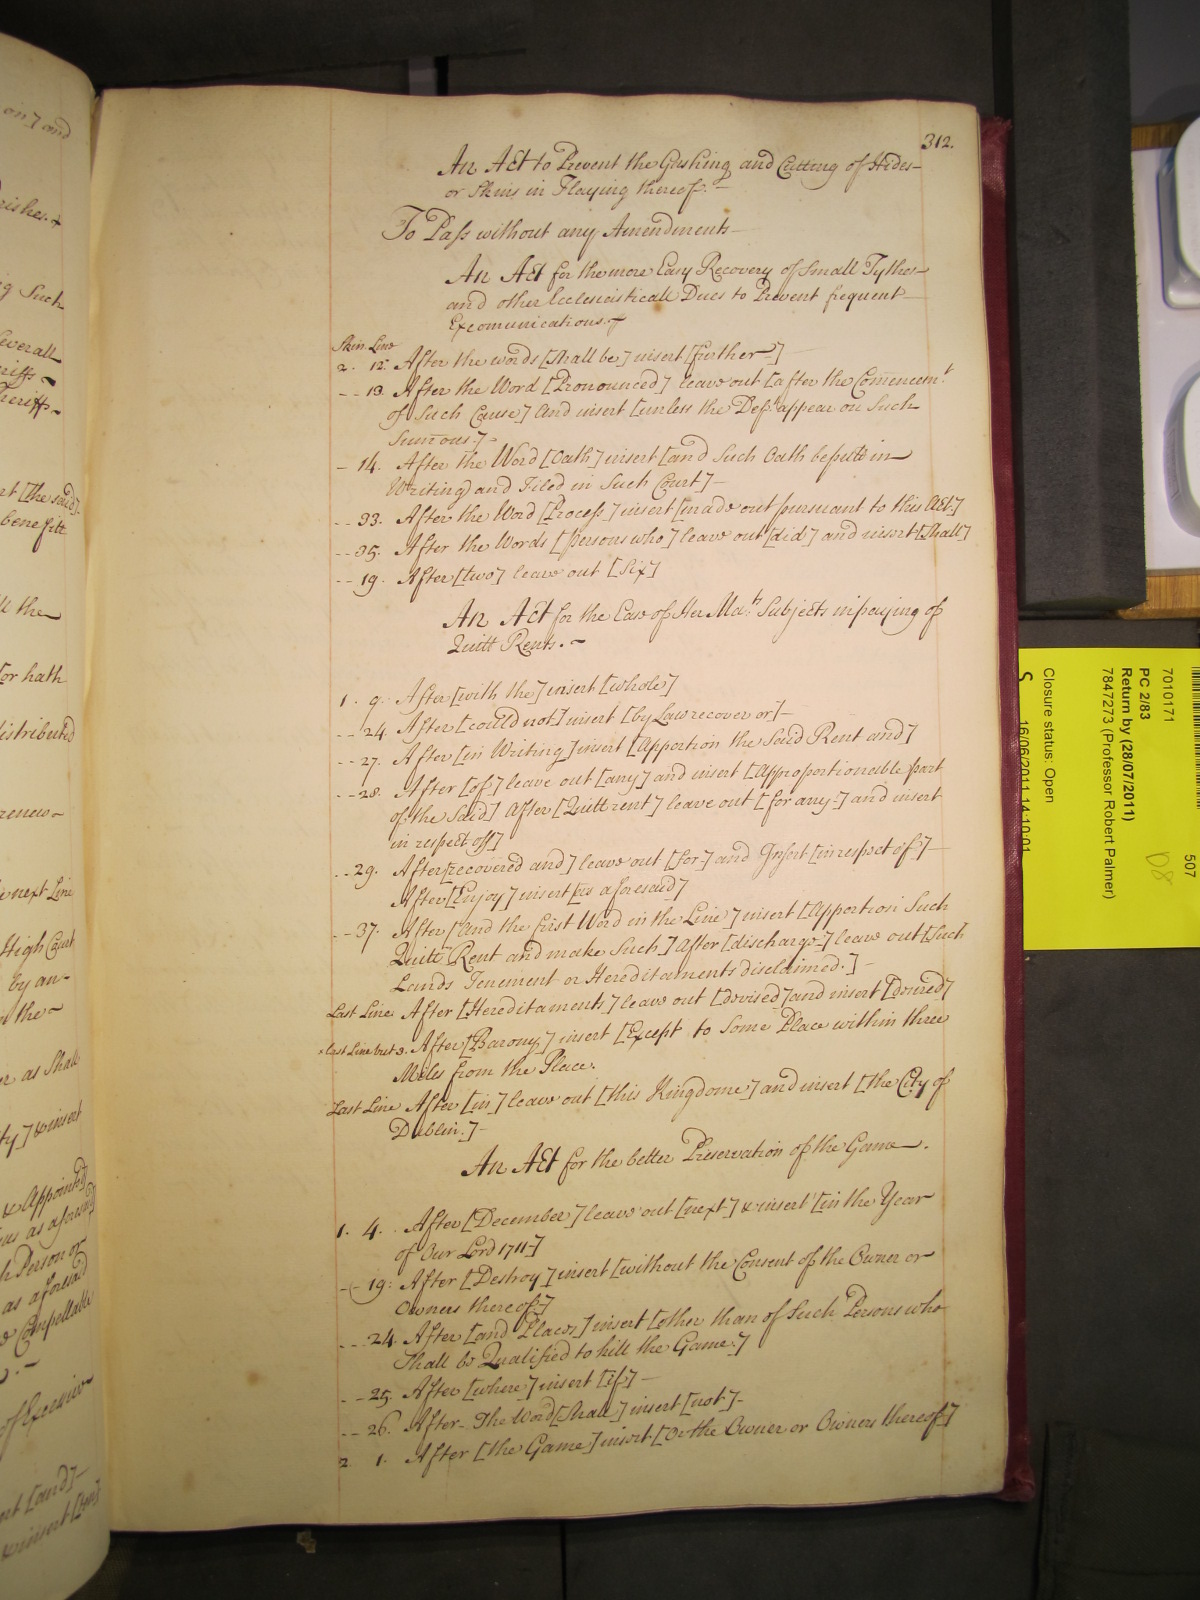 312.
An Act to Prevent the Gashing and Cutting of Hides
or Skins in Flaying thereof.
To Pass without any Amendments
An Act for the more Easy Recovery of Small Tythes
and other Ecclesiasticall Dues to Prevent frequent
Excomunications.
Skin Line
2. 12. After the words [Shall be] insert [further]
-- 13. After the Word [Pronounced] leave out [after the Comencemt
of Such Cause] And insert [unless the Deft appear on Such
Summons.]
- 14. After the Word [Oath] insert [and Such Oath be putt in
Writing and Filed in Such Court]
-- 33. After the Word [Process] insert [made out pursuant to this Act]
-- 35. After the Words [persons who] leave out [did] and insert [Shall]
-- 19. After [two] leave out [Six]
An Act for the Ease of Her Mats Subjects in paying of
Quitt Rents.
1. 9. After [with the] insert [whole]
-- 24. After [could not] insert [by Law recover or]
-- 27. After [in Writing] insert [Apportion the Said Rent and]
-- 28. After [of] leave out [any] and insert [Approportionable part
of the Said] After [Quitt rent] leave out [for any] and insert
in respect off]
-- 29. After [recovered and] leave out [for] and Insert [in respect of]
After [Enjoy] insert [as aforesaid]
-- 37. After [and the first Word in the Line] insert [Apportion Such
Quitt Rent and make Such] After [discharge] leave out [Such
Lands Tenement or Hereditaments disclaimed.]
Last Line After [Hereditaments] leave out [devised] and insert [desired]
Last Line but 3. After [Barony] insert [Except to Some Place within three
Miles from the Place.
Last Line After [in] leave out [this Kingdome] and insert [the City of
Dublin.]
An Act for the better Preservation of the Game.
1. 4. After [December] leave out [next] & insert [in the Year
of Our Lord 1711]
-- 19. After [Destroy] insert [without the Consent of the Owner or
Owners thereof]
--- 24. After [and Places] insert [other than of Such Persons who
Shall be Qualified to kill the Game.]
-- 25. After [where] insert [if]
-- 26. After The Word [Shall] insert [not]
2 1. After [the Game] insert [Or the Owner or Owners thereof]
such
benefitt
the
or hath
distributed
next Line
High Court
by an-
n the
as Shall
& insert
& Appointed
as aforesaid
Person or
as aforesaid
Compellable
of Excessive
7010171
507
PC 2/83
Return by (28/07/2011)
7847273 (Professor Robert Palmer)
D8
Closure status: Open
16/06/2011 14:10:01
S